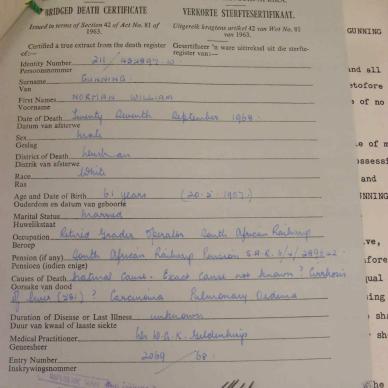 BRIDGED DEATH CERTIFICATE
VERKORTE STERFTESERTIFIKAAT.
Issued in terms of Section 42 of Act No. 81 of 1963.
Uitgereik kragtens artikel 42 van Wet No. 81 van 1963.
Certified a true extract from the death register of:—
Gesertifiseer 'n ware uittreksel uit die sterfteregister van:—
Identity Number 211/ W
Persoonsnommer
Surname GUNNING
Van
First Names NORMAN WILLIAM
Voorname
Date of Death Twenty Seventh September 1968
Datum van afsterwe
Sex Male
Geslag
District of Death
Distrik van afsterwe
Race White
Ras
Age and Date of Birth 61 years (20.2.1907)
Ouderdom en datum van geboorte
Marital Status Married
Huwelikstaat
Occupation Retired Grader Operator South African Railway
Beroep
Pension (if any) South African Railway Pension S.A.R.
Pensioen (indien enige)
Causes of Death Natural Cause. Exact Cause not known? Cirrhosis
Oorsake van dood
of liver (581)? Carcinoma Pulmonary Oedema
Duration of Disease or Last Illness unknown
Duur van kwaal of laaste siekte
Medical Practitioner Geldenhuys
Geneesheer
Entry Number 2069/68
Inskrywingsnommer
GUNNING
and all
of no
and
GUNNING